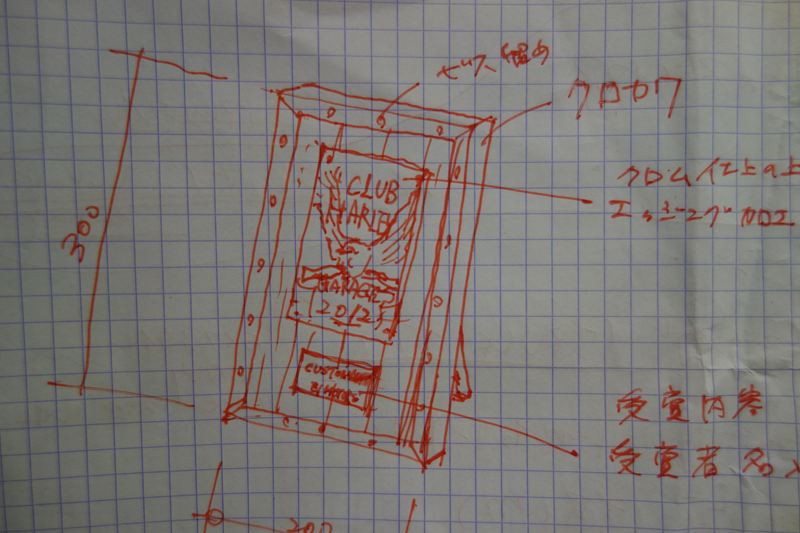 ビス留め
クロカワ
クロムイ上の上
エッチング加工
300
CLUB
HARLEY
2012
CUSTOM
受賞内容
受賞者名入
200